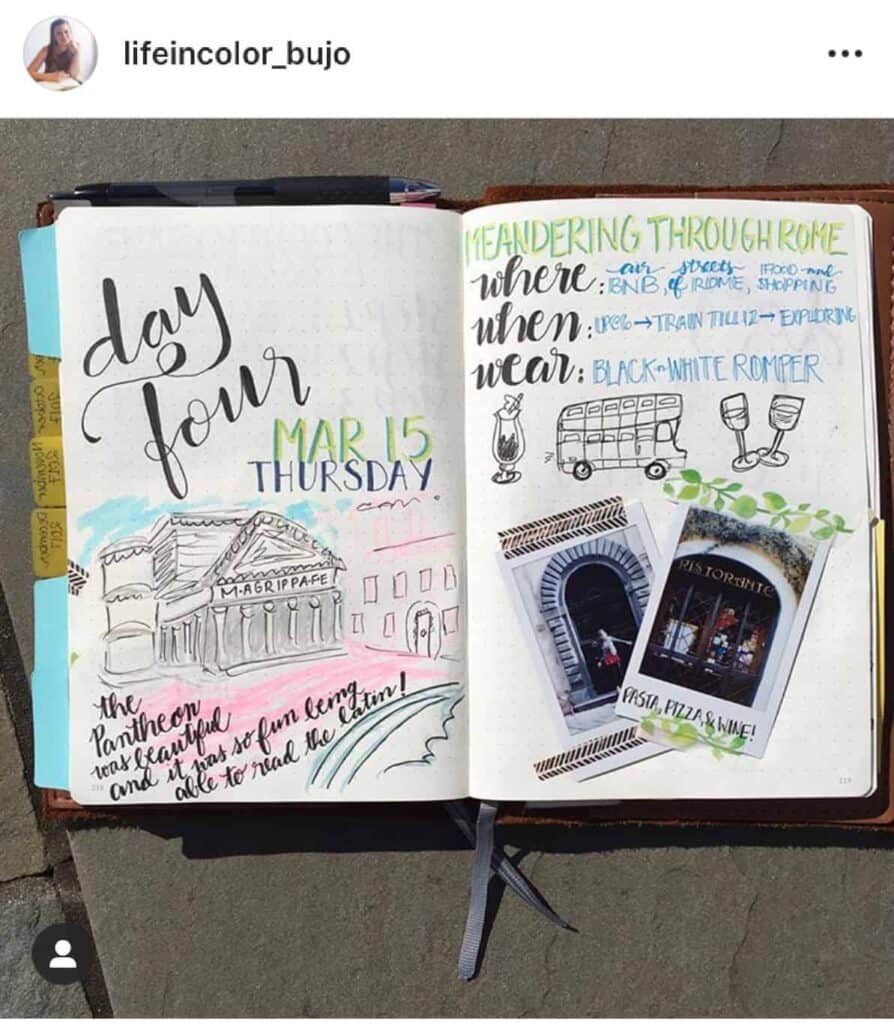 lifeincolor_bujo
day
four
MAR 15
THURSDAY
M·AGRIPPA·F·E
the
Pantheon
was beautiful
and it was so fun being
able to read the latin!
MEANDERING THROUGH ROME
where: air BNB, streets of ROME, FOOD and SHOPPING
when: UP @ 6 → TRAIN TILL 12 → EXPLORING
wear: BLACK n WHITE ROMPER
RISTORANTE
PASTA, PIZZA & WINE!
2017
october
2017
November
2017
December
219